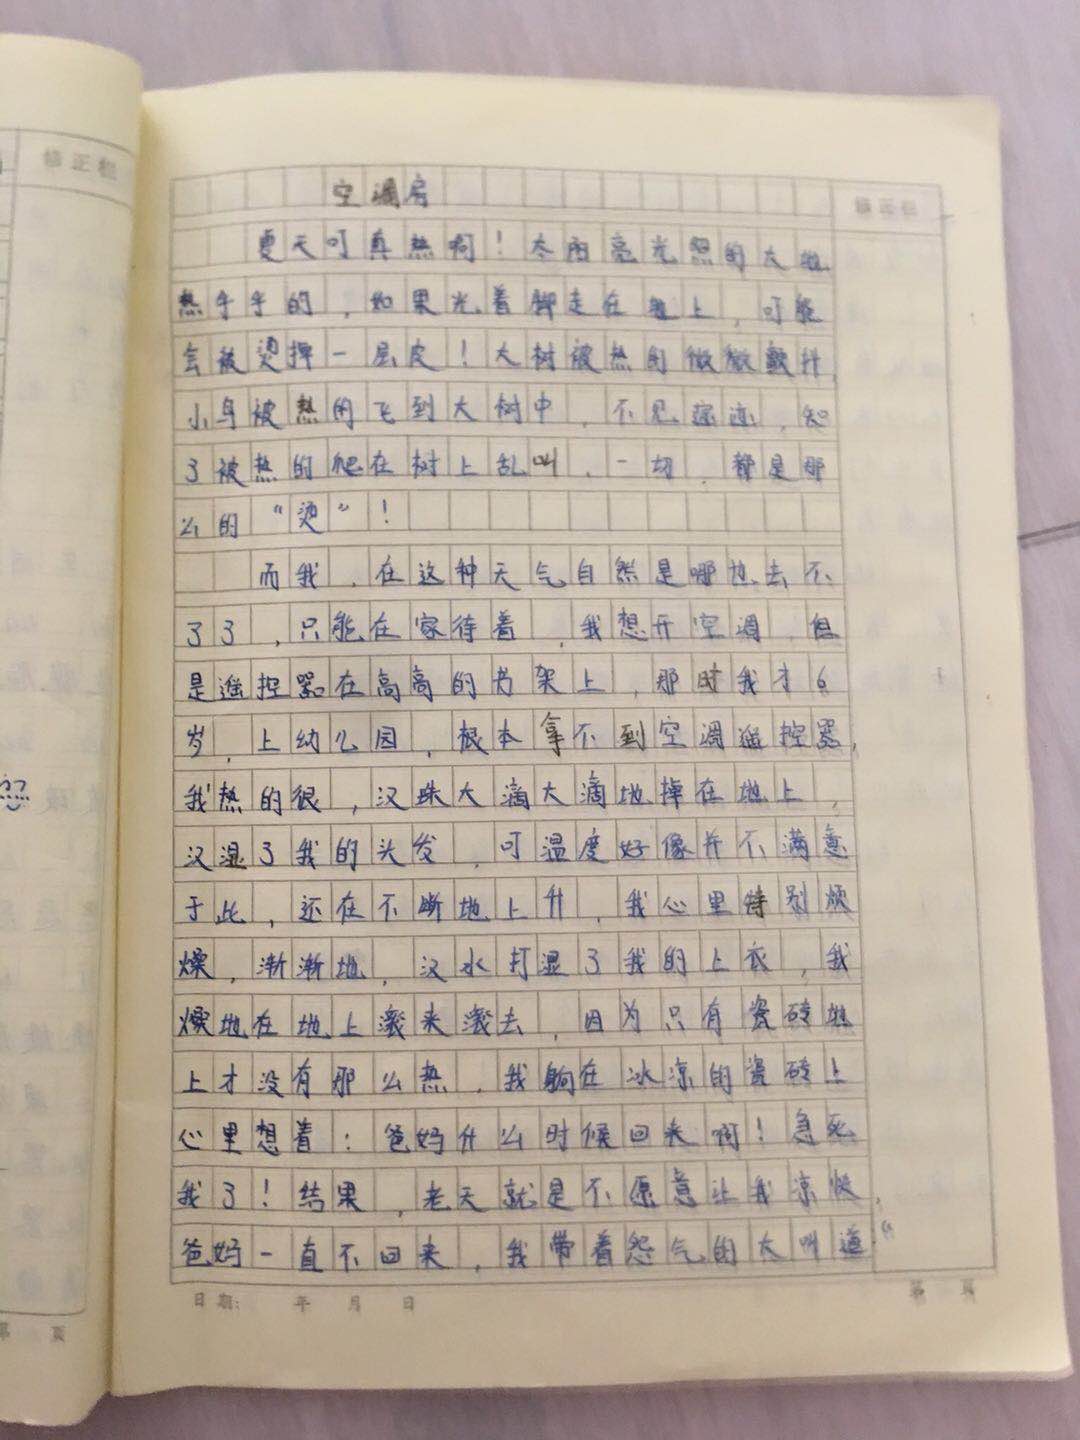 修正栏
空调房
修正栏
夏天可真热啊！太阳亮光照的大地
热乎乎的，如果光着脚走在地上，可能
会被烫掉一层皮！大树被热的微微
小鸟被热的飞到大树中，不见踪迹，知
了被热的爬在树上乱叫，一切，都是那
么的“烫”！
而我，在这种天气自然是哪也去不
了了，只能在家待着，我想开空调，但
是遥控器在高高的书架上，那时我才6
岁，上幼儿园，根本拿不到空调遥控器，
我热的很，汉珠大滴大滴地掉在地上，
汉湿了我的头发，可温度好像并不满意
于此，还在不断地上升，我心里特别烦
燥，渐渐地，汉水打湿了我的上衣，我
燥地在地上滚来滚去，因为只有瓷砖地
上才没有那么热，我躺在冰凉的瓷砖上
心里想着：爸妈什么时候回来啊！急死
我了！结果，老天就是不愿意让我凉快，
爸妈一直不回来，我带着怨气的大叫道：“
日期： 年 月 日
第 页
第 页